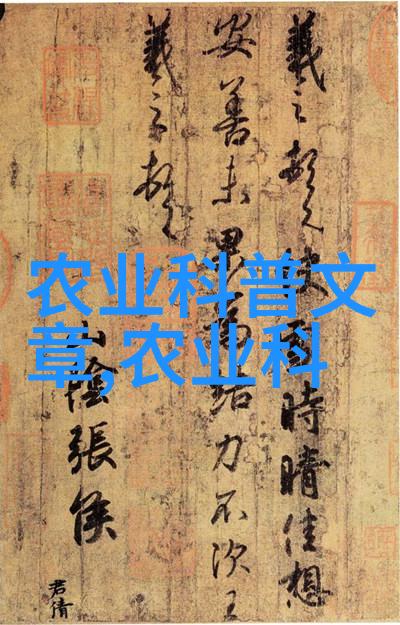 羲之頓首快雪時晴佳想
安善未果為結力不次王
羲之頓首
山陰張侯
君倩
农业科普文
章,农业科